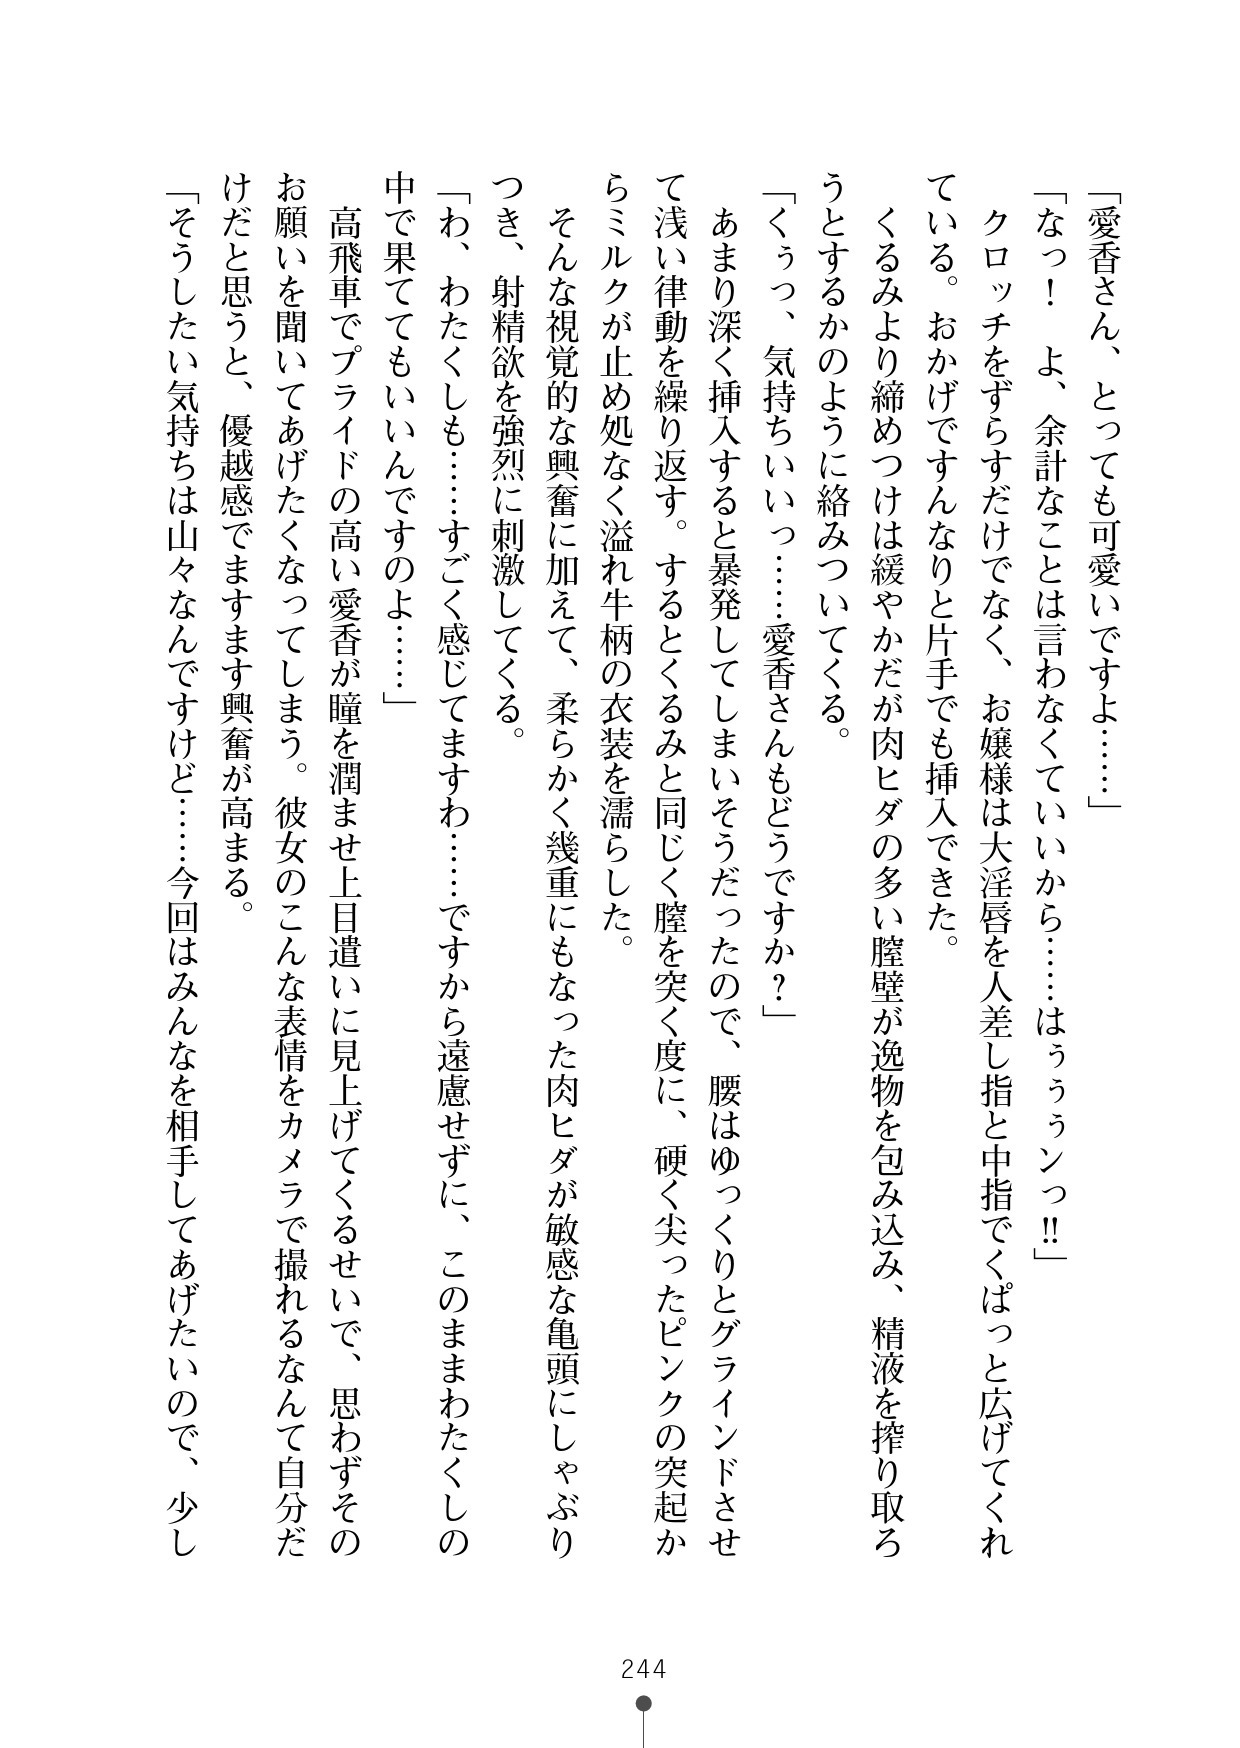 「愛香さん、とっても可愛いですよ……」
「なっ！　よ、余計なことは言わなくていいから……はぅぅぅンっ‼」
　クロッチをずらすだけでなく、お嬢様は大淫唇を人差し指と中指でくぱっと広げてくれ
ている。おかげですんなりと片手でも挿入できた。
　くるみより締めつけは緩やかだが肉ヒダの多い膣壁が逸物を包み込み、精液を搾り取ろ
うとするかのように絡みついてくる。
「くぅっ、気持ちいいっ……愛香さんもどうですか？」
　あまり深く挿入すると暴発してしまいそうだったので、腰はゆっくりとグラインドさせ
て浅い律動を繰り返す。するとくるみと同じく膣を突く度に、硬く尖ったピンクの突起か
らミルクが止め処なく溢れ牛柄の衣装を濡らした。
　そんな視覚的な興奮に加えて、柔らかく幾重にもなった肉ヒダが敏感な亀頭にしゃぶり
つき、射精欲を強烈に刺激してくる。
「わ、わたくしも……すごく感じてますわ……ですから遠慮せずに、このままわたくしの
中で果ててもいいんですのよ……」
　高飛車でプライドの高い愛香が瞳を潤ませ上目遣いに見上げてくるせいで、思わずその
お願いを聞いてあげたくなってしまう。彼女のこんな表情をカメラで撮れるなんて自分だ
けだと思うと、優越感でますます興奮が高まる。
「そうしたい気持ちは山々なんですけど……今回はみんなを相手してあげたいので、少し
244